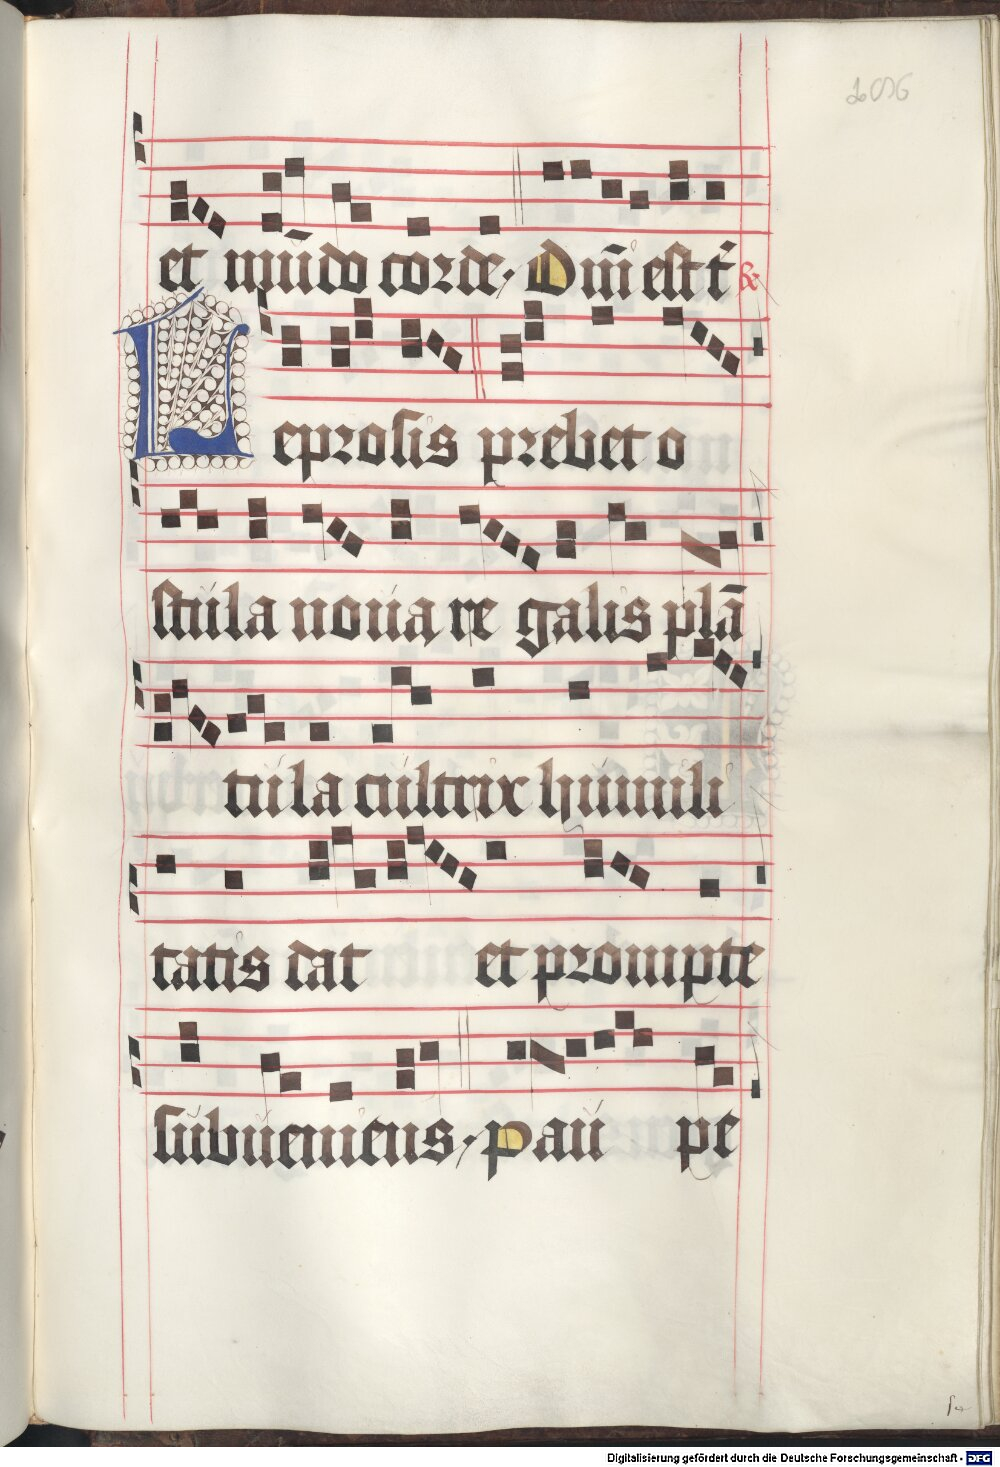 et mūdo corde. Om̄ est t᷑ &
Leprosis prebet o
stiula noua re galis plā
tula cultrix humili
tatis dat et prompte
subueniens. pau pe
Digitalisierung gefördert durch die Deutsche Forschungsgemeinschaft - DFG